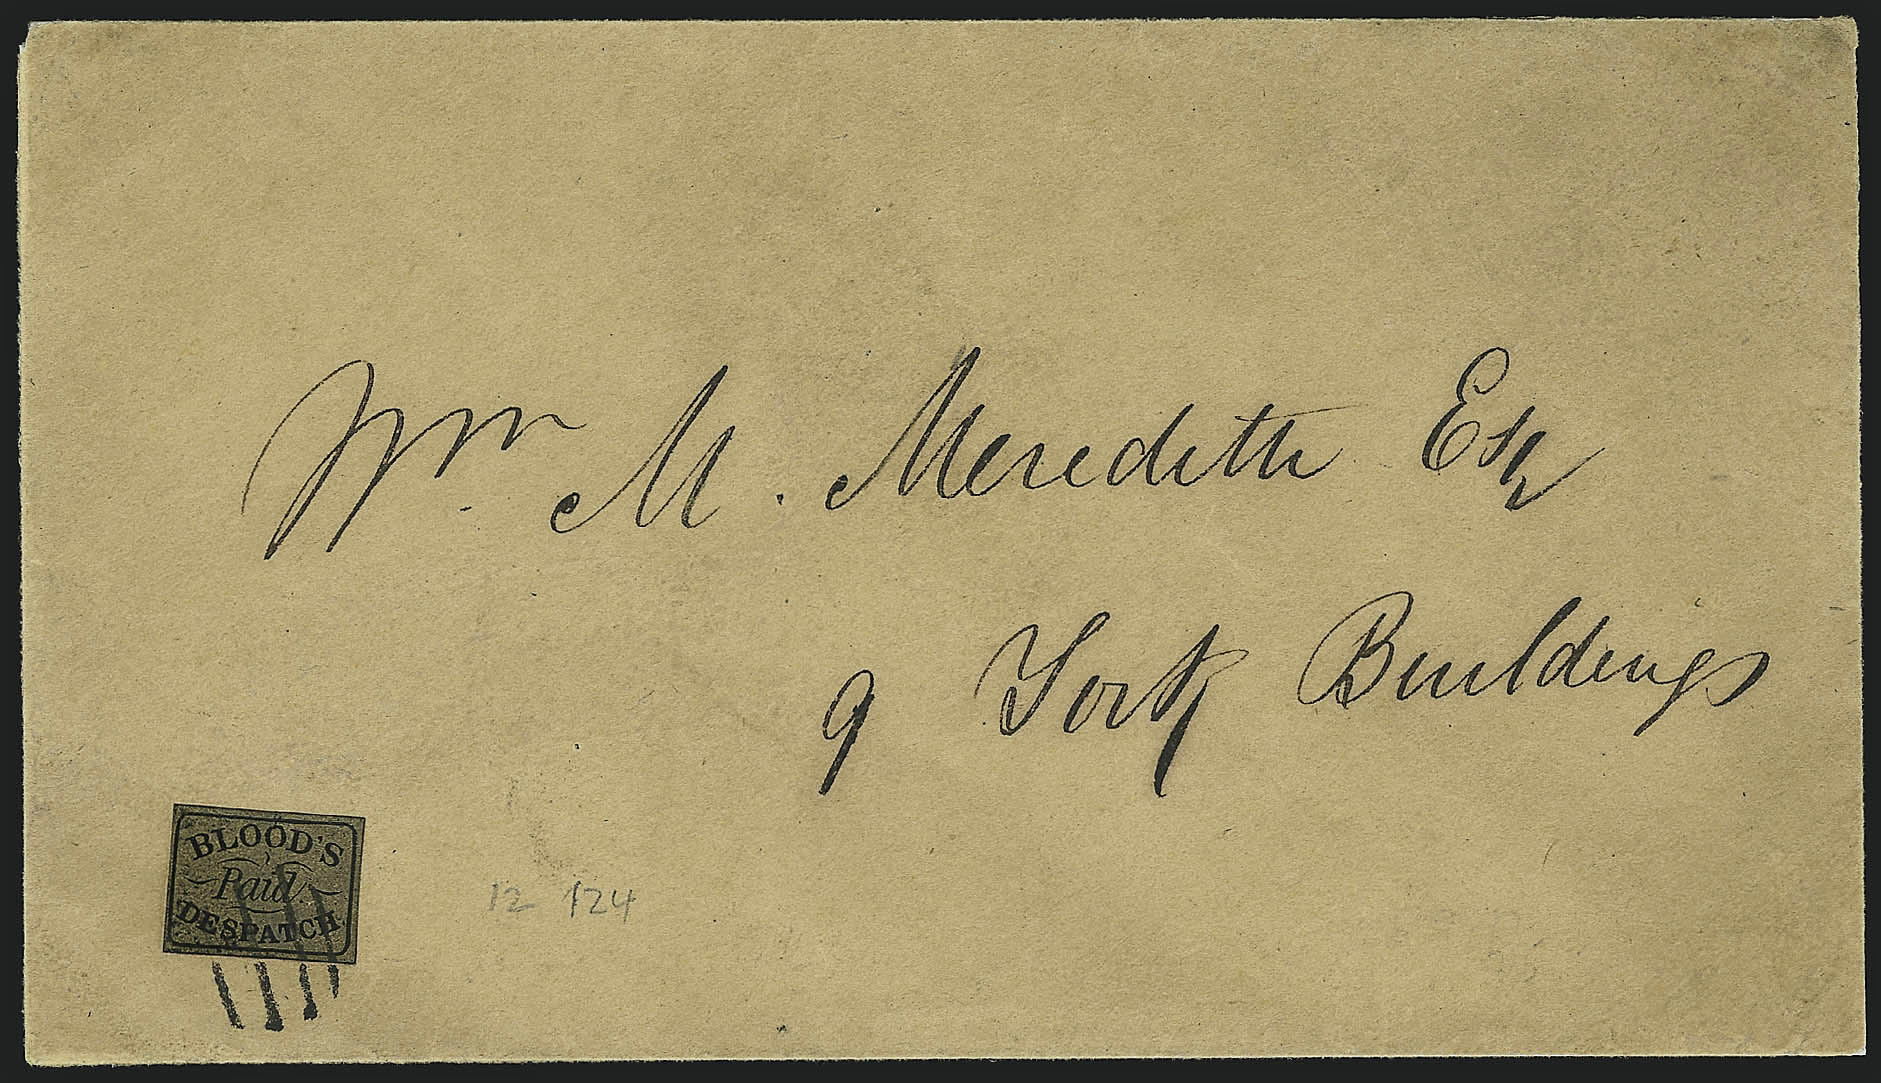 Wm. M. Meredith Esq
9 York Buildings
BLOOD'S
Paid
DESPATCH
12 124